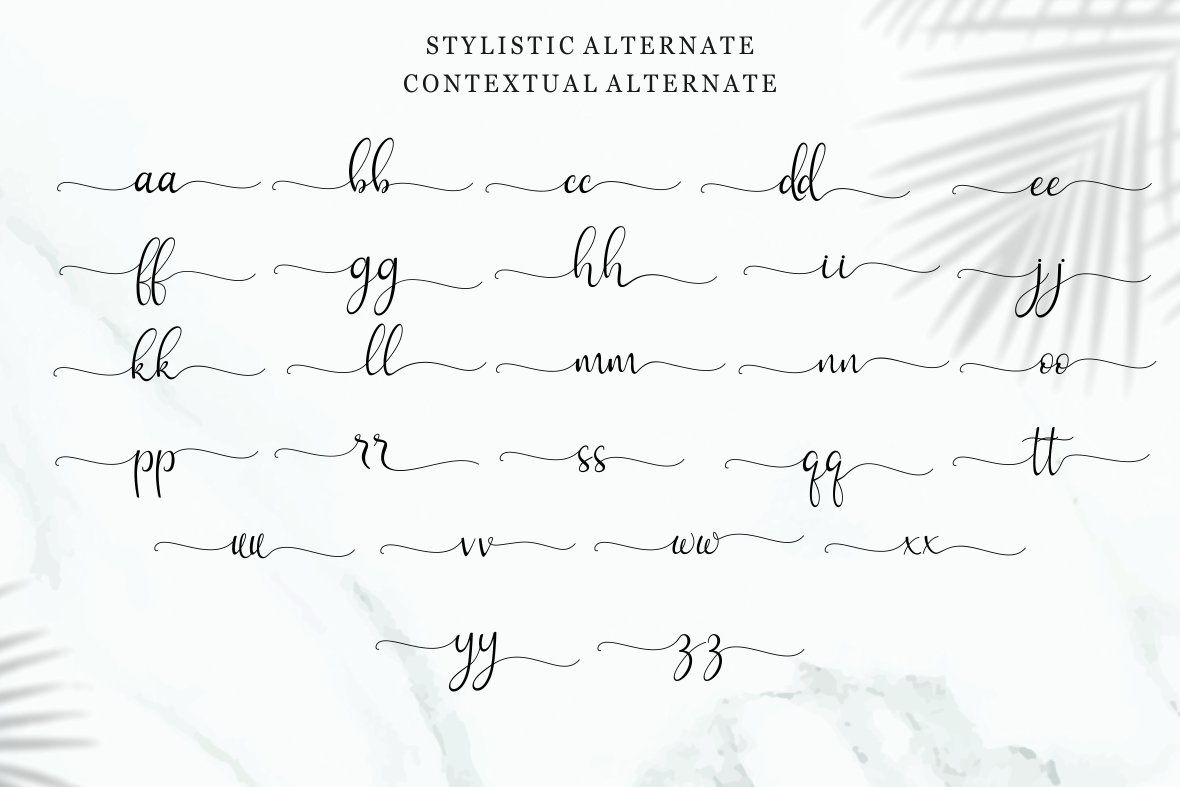 STYLISTIC ALTERNATE
CONTEXTUAL ALTERNATE
aa bb cc dd ee
ff gg hh ii jj
kk ll mm nn oo
pp rr ss qq tt
uu vv ww xx
yy zz